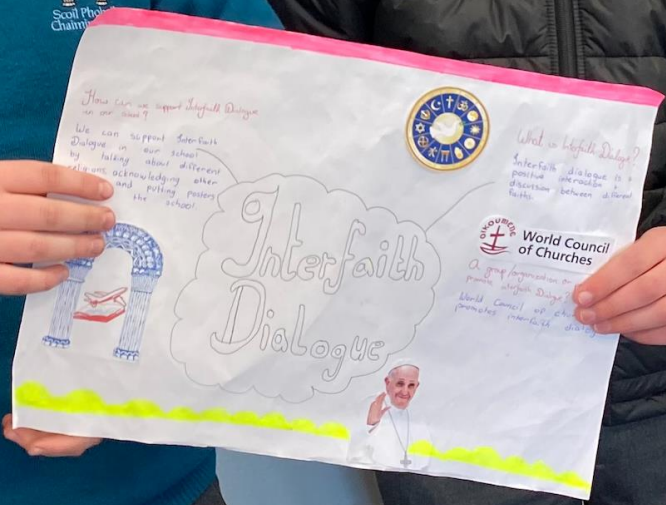 Scoil Phobail
How can we support Interfaith Dialogue
in our school?
We can support Interfaith
Dialogue in our school
by talking about different
religions acknowledging other
and putting posters
the school.
Interfaith
Dialogue
What is Interfaith Dialogue?
Interfaith dialogue is a
positive interaction &
discussion between different
faiths.
OIKOUMENE
World Council
of Churches
A group/organisation
promote interfaith Dialogue?
World Council of
promotes interfaith